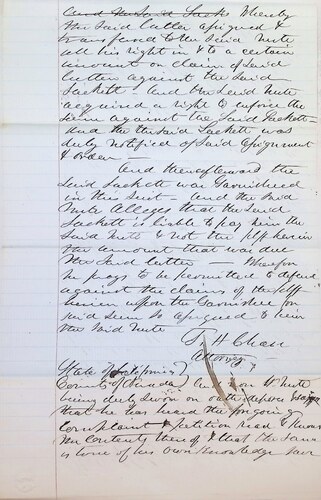 and the said Sacks Whereby
the said Cutler assigned &
transfered to the said Mute
all his right in & to a certain
amount on claim of said
Cutler against the said
Sackett - And the said Mute
acquired a right to enforce the
same against the said Sackett -
and the said Sackett was
duly notified of said assignment
& order -
And thereafterward the
said Sackett was Garnisheed
in this suit - And the said
Mute Alleges that the said
Sackett is liable to pay him the
said Mute & not the plff herein
the amount that was due
the said Cutler - Wherefore
he prays to be permitted to defend
against the claims of the plff
herein upon the Garnishee for
said sum so assigned to him
the said Mute
T. H. Chase
Attorney
State of California
County of Nevada
being duly sworn on oath deposes & says
that he has heard the foregoing
Complaint & petition read & knows
the Contents thereof & that the same
is true of his own Knowledge